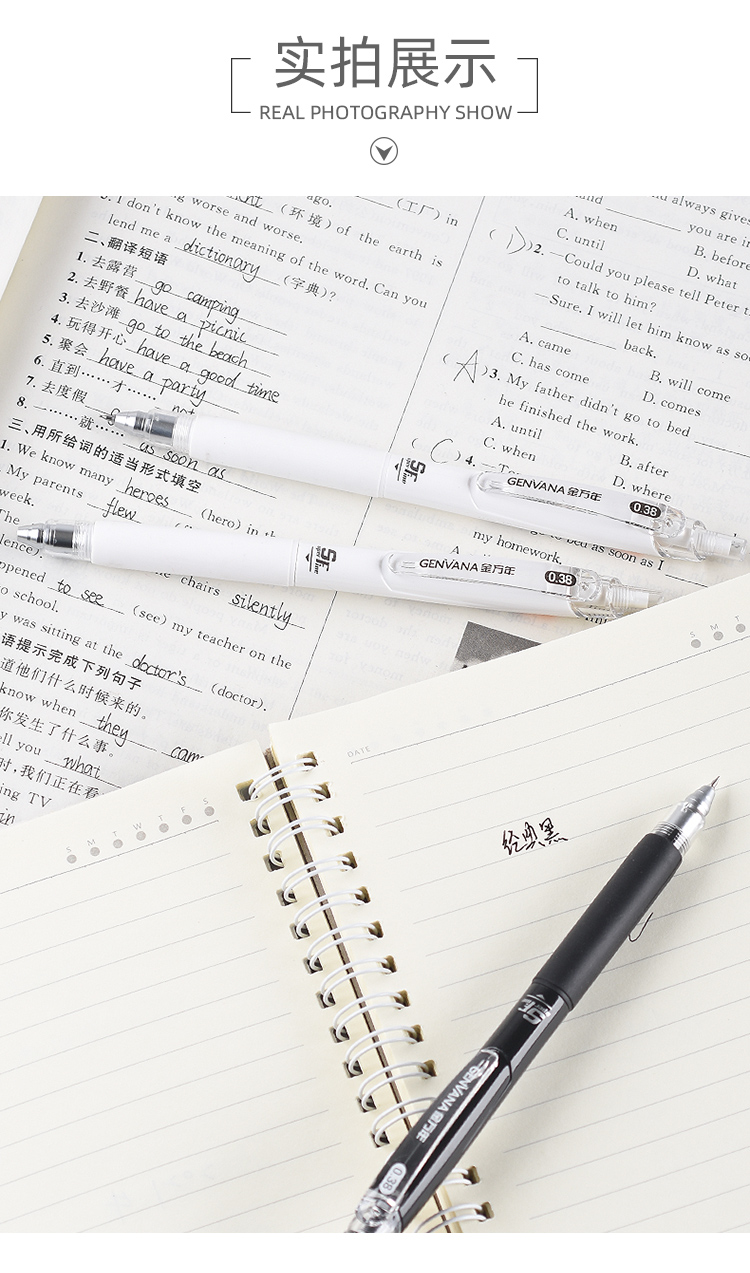 实拍展示
REAL PHOTOGRAPHY SHOW
ago.
(工厂) in
ng worse and worse.
(环境) of the earth is
I don't know the meaning of the word. Can you
lend me a dictionary (字典)?
二、翻译短语
1. 去露营 go camping
2. 去野餐 have a picnic
3. 去沙滩 go to the beach
4. 玩得开心 have a good time
5. 聚会 have a party
6. 直到……才……
7. 去度假
8. 一……就…… as soon as
三、用所给词的适当形式填空
1. We know many heroes (hero) in th
My parents flew
week.
The
lence).
chairs silently
ppened to see (see) my teacher on the
o school.
y was sitting at the doctor's (doctor).
语提示完成下列句子
道他们什么时候来的。
know when they cam
你发生了什么事。
ell you what
时,我们正在看
ing TV
and
d always gives
you are i
A. when
B. before
C. until
D. what
(D) 2. —Could you please tell Peter t
to talk to him?
—Sure. I will let him know as soo
back.
A. came
B. will come
C. has come
D. comes
(A) 3. My father didn't go to bed
he finished the work.
A. until
B. after
C. when
D. where
(C) 4.
to bed as soon as I
my homework.
A
GENVANA 金万年
0.38
GENVANA 金万年
0.38
S M T
DATE
S M T W T F S
绘典黑
GENVANA 金万年
0.38